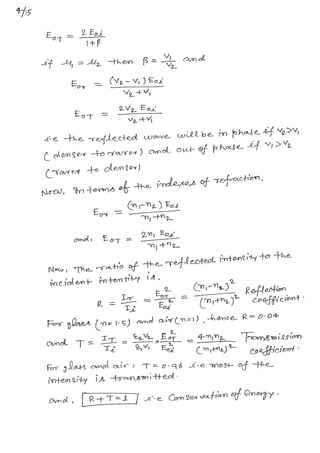 4/15
E_OT = 2 E_oi / 1+β
if μ₁ = μ₂ then β = V₁/V₂ and
E_or = (V₂ - V₁) E_oi / V₂ + V₁
E_OT = 2V₂ E_oi / V₂ + V₁
i.e the reflected wave will be in phase if V₂ > V₁
(denser to rarer) and out of phase if V₁ > V₂
(rarer to denser)
Now, In terms of the indexes of refraction,
E_or = (n₁ - n₂) E_oi / n₁ + n₂
and, E_OT = 2n₁ E_oi / n₁ + n₂
Now, The ratio of the reflected intensity to the
incident intensity is,
R = I_r / I_i = E_or² / E_oi² = (n₁ - n₂)² / (n₁ + n₂)² Reflection Coefficient.
For glass (n = 1.5) and air (n = 1), hence R = 0.04
and T = I_T / I_i = ε₂V₂ / ε₁V₁ × E_OT² / E_oi² = 4 n₁n₂ / (n₁ + n₂)² Transmission Coefficient.
For glass and air, T = 0.96 i.e most of the
intensity is transmitted.
and, R + T = 1 i.e Conservation of Energy.